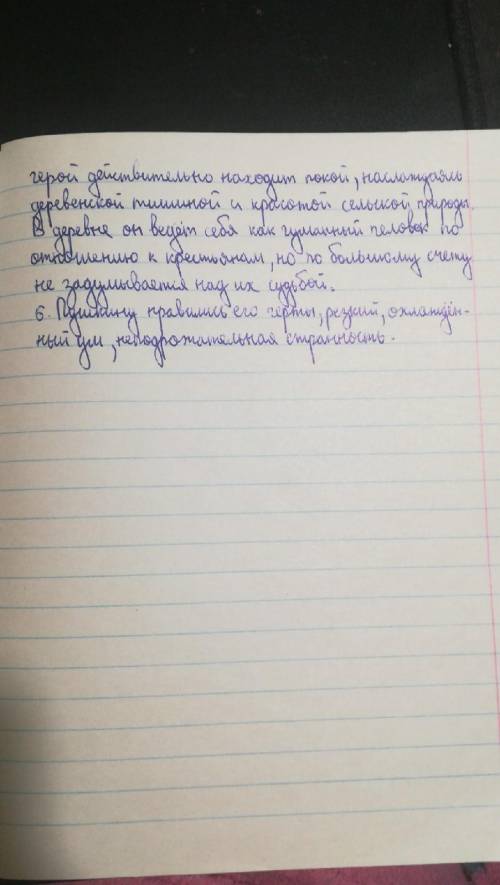 герой действительно находит покой, наслаждаясь
деревенской тишиной и красотой сельской природы.
В деревне он ведёт себя как гуманный человек по
отношению к крестьянам, но по большому счету
не задумывается над их судьбой.
6. Пушкину нравились его черты, резкий, охлаждён-
ный ум, неподрожательная странность.